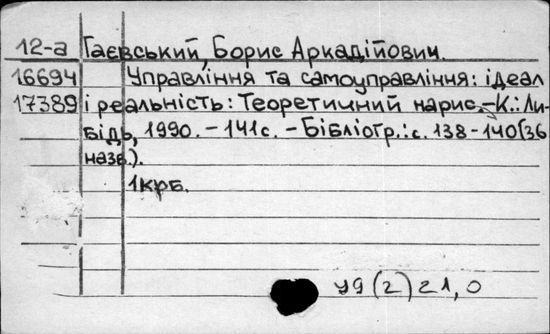 12-а Гаєвський, Борис Аркадійович.
16694 Управління та самоуправління: ідеал
17389 і реальність: Теоретичний нарис.-К.: Ли-
бідь, 1990. - 141с. - Бібліогр.: с. 138-140(36
назв.).
1крб.
У9(2)21,0